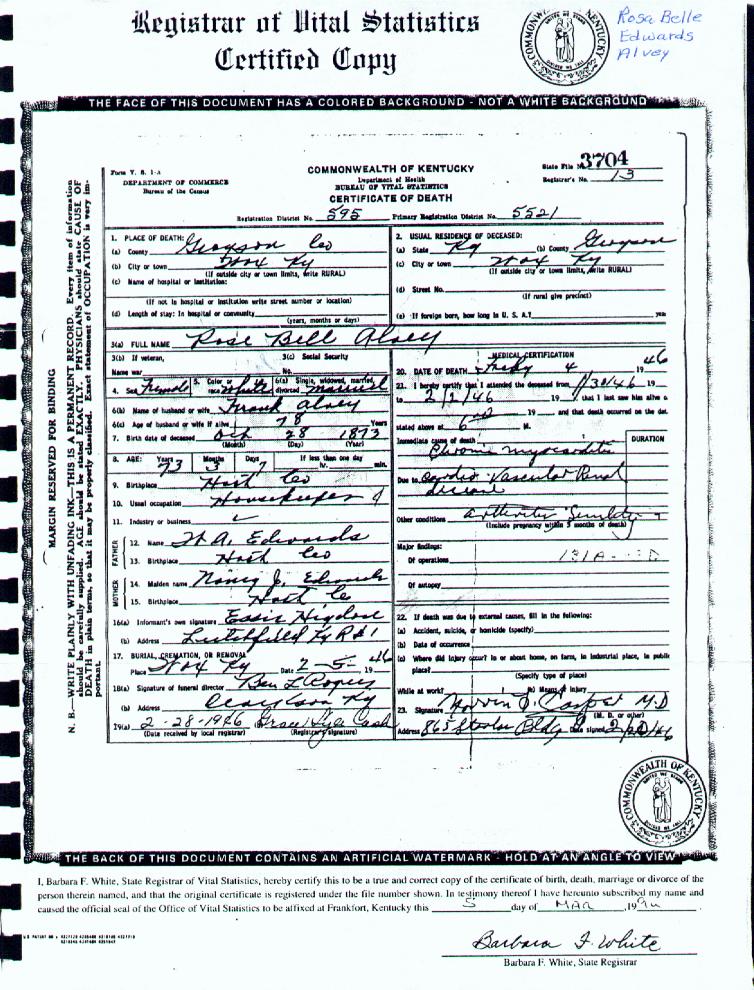 Registrar of Vital Statistics
Certified Copy
Rosa Belle
Edwards
Alvey
THE FACE OF THIS DOCUMENT HAS A COLORED BACKGROUND - NOT A WHITE BACKGROUND
Form V. S. 1-A
DEPARTMENT OF COMMERCE
Bureau of the Census
COMMONWEALTH OF KENTUCKY
Department of Health
BUREAU OF VITAL STATISTICS
CERTIFICATE OF DEATH
State File No. 3704
Registrar's No. 13
Registration District No. 595 Primary Registration District No. 5521
MARGIN RESERVED FOR BINDING
N. B.—WRITE PLAINLY WITH UNFADING INK—THIS IS A PERMANENT RECORD. Every item of information
should be carefully supplied. AGE should be stated EXACTLY. PHYSICIANS should state CAUSE OF
DEATH in plain terms, so that it may be properly classified. Exact statement of OCCUPATION is very im-
portant.
1. PLACE OF DEATH:
(a) County Grayson Co
(b) City or town Wax Ky
(If outside city or town limits, write RURAL)
(c) Name of hospital or institution:
(If not in hospital or institution write street number or location)
(d) Length of stay: In hospital or community
(years, months or days)
2. USUAL RESIDENCE OF DECEASED:
(a) State Ky (b) County Grayson
(c) City or town Wax Ky
(If outside city or town limits, write RURAL)
(d) Street No.
(If rural give precinct)
(e) If foreign born, how long in U. S. A.? year
3(a) FULL NAME Rose Bell Alvey
3(b) If veteran,
Name war
3(c) Social Security
No.
4. Sex Female 5. Color or race white 6(a) Single, widowed, married, divorced married
6(b) Name of husband or wife Frank Alvey
6(c) Age of husband or wife if alive 78 Years
7. Birth date of deceased Oct 28 1873
(Month) (Day) (Year)
8. AGE: Years Months Days If less than one day
73 3 7 hr. min.
9. Birthplace Hart Co
10. Usual occupation Housekeeper
11. Industry or business
FATHER
12. Name W A. Edwards
13. Birthplace Hart Co
MOTHER
14. Maiden name Nancy J. Edwards
15. Birthplace Hart Co
16(a) Informant's own signature Essie Higdon
(b) Address Leitchfield Ky R#1
17. BURIAL, CREMATION, OR REMOVAL
Place Wax Ky Date 2-5- 1946
18(a) Signature of funeral director Ben L
(b) Address Clarkson Ky
19(a) 2-28-1946 Grace Lyle Cash
(Date received by local registrar) (Registrar's signature)
MEDICAL CERTIFICATION
20. DATE OF DEATH 4 1946
21. I hereby certify that I attended the deceased from 1/30/46 19
to 2/2/46 19 that I last saw him alive
19 and that death occurred on the dat
stated above at 6 M.
Immediate cause of death DURATION
Chronic myocarditis
Due to Cardio Vascular Renal
disease
Other conditions arthritis Senility
(Include pregnancy within 3 months of death)
Major findings:
Of operations 131A
Of autopsy
22. If death was due to external causes, fill in the following:
(a) Accident, suicide, or homicide (specify)
(b) Date of occurrence
(c) Where did injury occur? In or about home, on farm, in industrial place, in public
place?
(Specify type of place)
While at work? Means of injury
23. Signature M.D
(M. D. or other)
Address 865 Bldg Date signed
COMMONWEALTH OF KENTUCKY
THE BACK OF THIS DOCUMENT CONTAINS AN ARTIFICIAL WATERMARK - HOLD AT AN ANGLE TO VIEW
I, Barbara F. White, State Registrar of Vital Statistics, hereby certify this to be a true and correct copy of the certificate of birth, death, marriage or divorce of the
person therein named, and that the original certificate is registered under the file number shown. In testimony thereof I have hereunto subscribed my name and
caused the official seal of the Office of Vital Statistics to be affixed at Frankfort, Kentucky this 5 day of MAR ,19
Barbara F. White
Barbara F. White, State Registrar